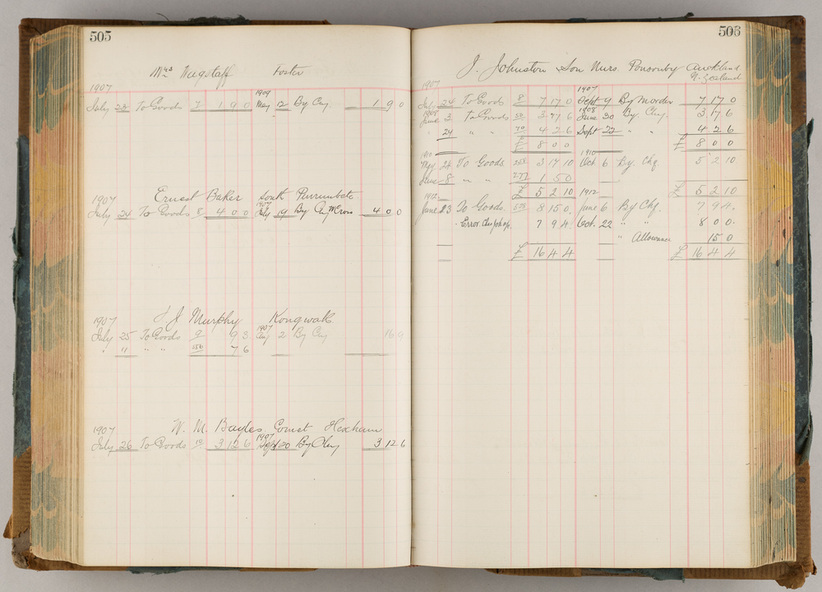 505
Mrs Wagstaff Foster
1907 1909
July 23 To Goods 1 9 0 May 2 By Chq 1 9 0
Ernest Baker South Purrumbete
1907
July 24 To Goods 4 0 0 July 19 By 4 0 0
J. J Murphy Kongwak
1907 1907
July 25 To Goods 9 9 3 Aug 2 By Chq 16 9
" " " " 7 6
W. M. Bayles Comst Hexham
1907 1907
July 26 To Goods 3 12 6 Sept 20 By Chq 3 12 6
506
J. Johnston & Son Nurs. Ponsonby Auckland
N. Zealand
1907 1907
July 24 To Goods 7 17 0 Sept 9 By M order 7 17 0
1908 1908
June 3 To Goods 3 17 6 June 30 By Chq. 3 17 6
" 24 " " 4 2 6 Sept 22 " " 4 2 6
£ 8 0 0 £ 8 0 0
1910 1910
24 To Goods 3 17 10 Oct 6 By Chq 5 2 10
June 8 " " 277 1 5 0
£ 5 2 10 £ 5 2 10
1912 1912
June 13 To Goods 8 15 0 June 6 By Chq. 7 9 4
Error 7 9 4 Oct. 22 " " 8 0 0
" Allowance 15 0
£ 16 4 4 £ 16 4 4